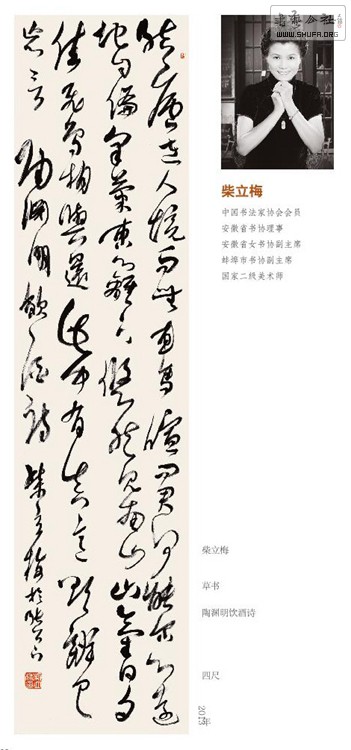 結廬在人境而無車馬喧問君何能尔心遠
地自偏采菊東籬下悠然見南山山氣日夕
佳飛鳥相與還此中有真意欲辨已
忘言 陶渊明飲酒詩 柴立梅於
書法公社
WWW.SHUFA.ORG
柴立梅
中国书法家协会会员
安徽省书协理事
安徽省女书协副主席
蚌埠市书协副主席
国家二级美术师
柴立梅
草书
陶渊明饮酒诗
四尺
2013年